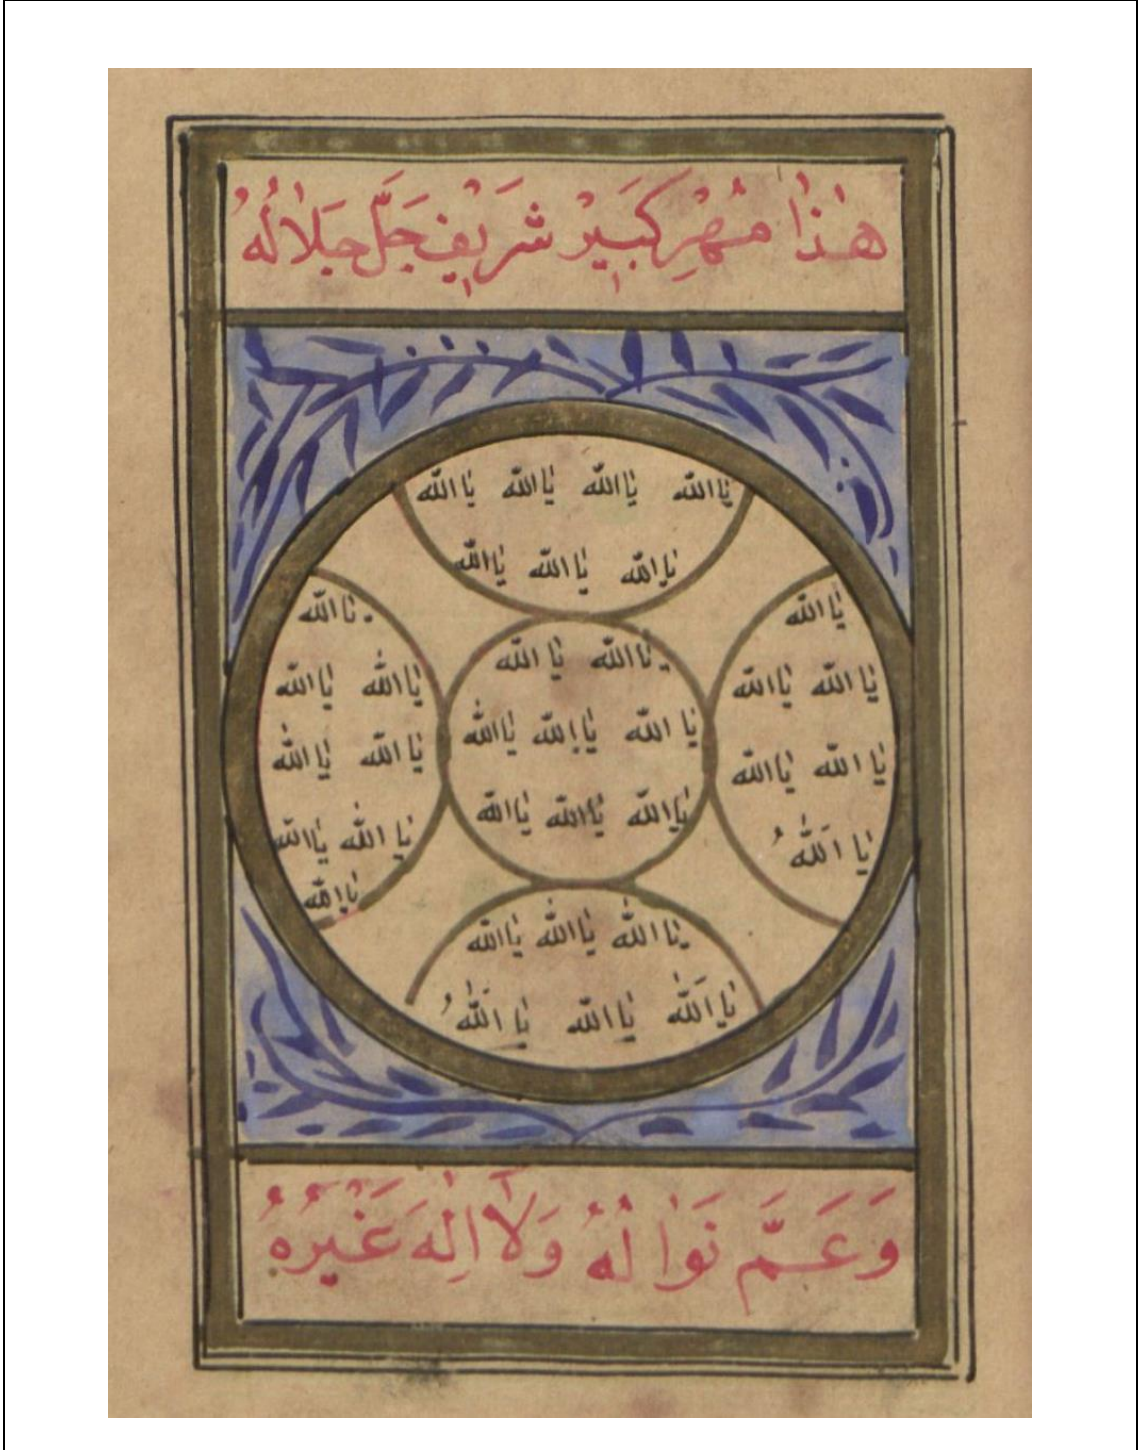 هٰذَا مُهْرِ كَبِيرْ شَرِيفْ جَلَّ جَلَالُهُ
يَا الله يَا الله يَا الله يَا الله
يَا الله يَا الله يَا الله
يَا الله
يَا الله يَا الله
يَا الله يَا الله
يَا اَلله
يَا الله يَا الله
يَا الله يَا الله يَا الله
يَا الله يَا الله يَا الله
يَا الله
يَا الله يَا الله
يَا الله يَا الله
يَا الله يَا الله
يَا الله
يَا الله يَا الله يَا الله
يَا الله يَا الله يَا اَلله
وَعَمَّ نَوَالُهُ وَلَا اِلٰهَ غَيْرُهُ